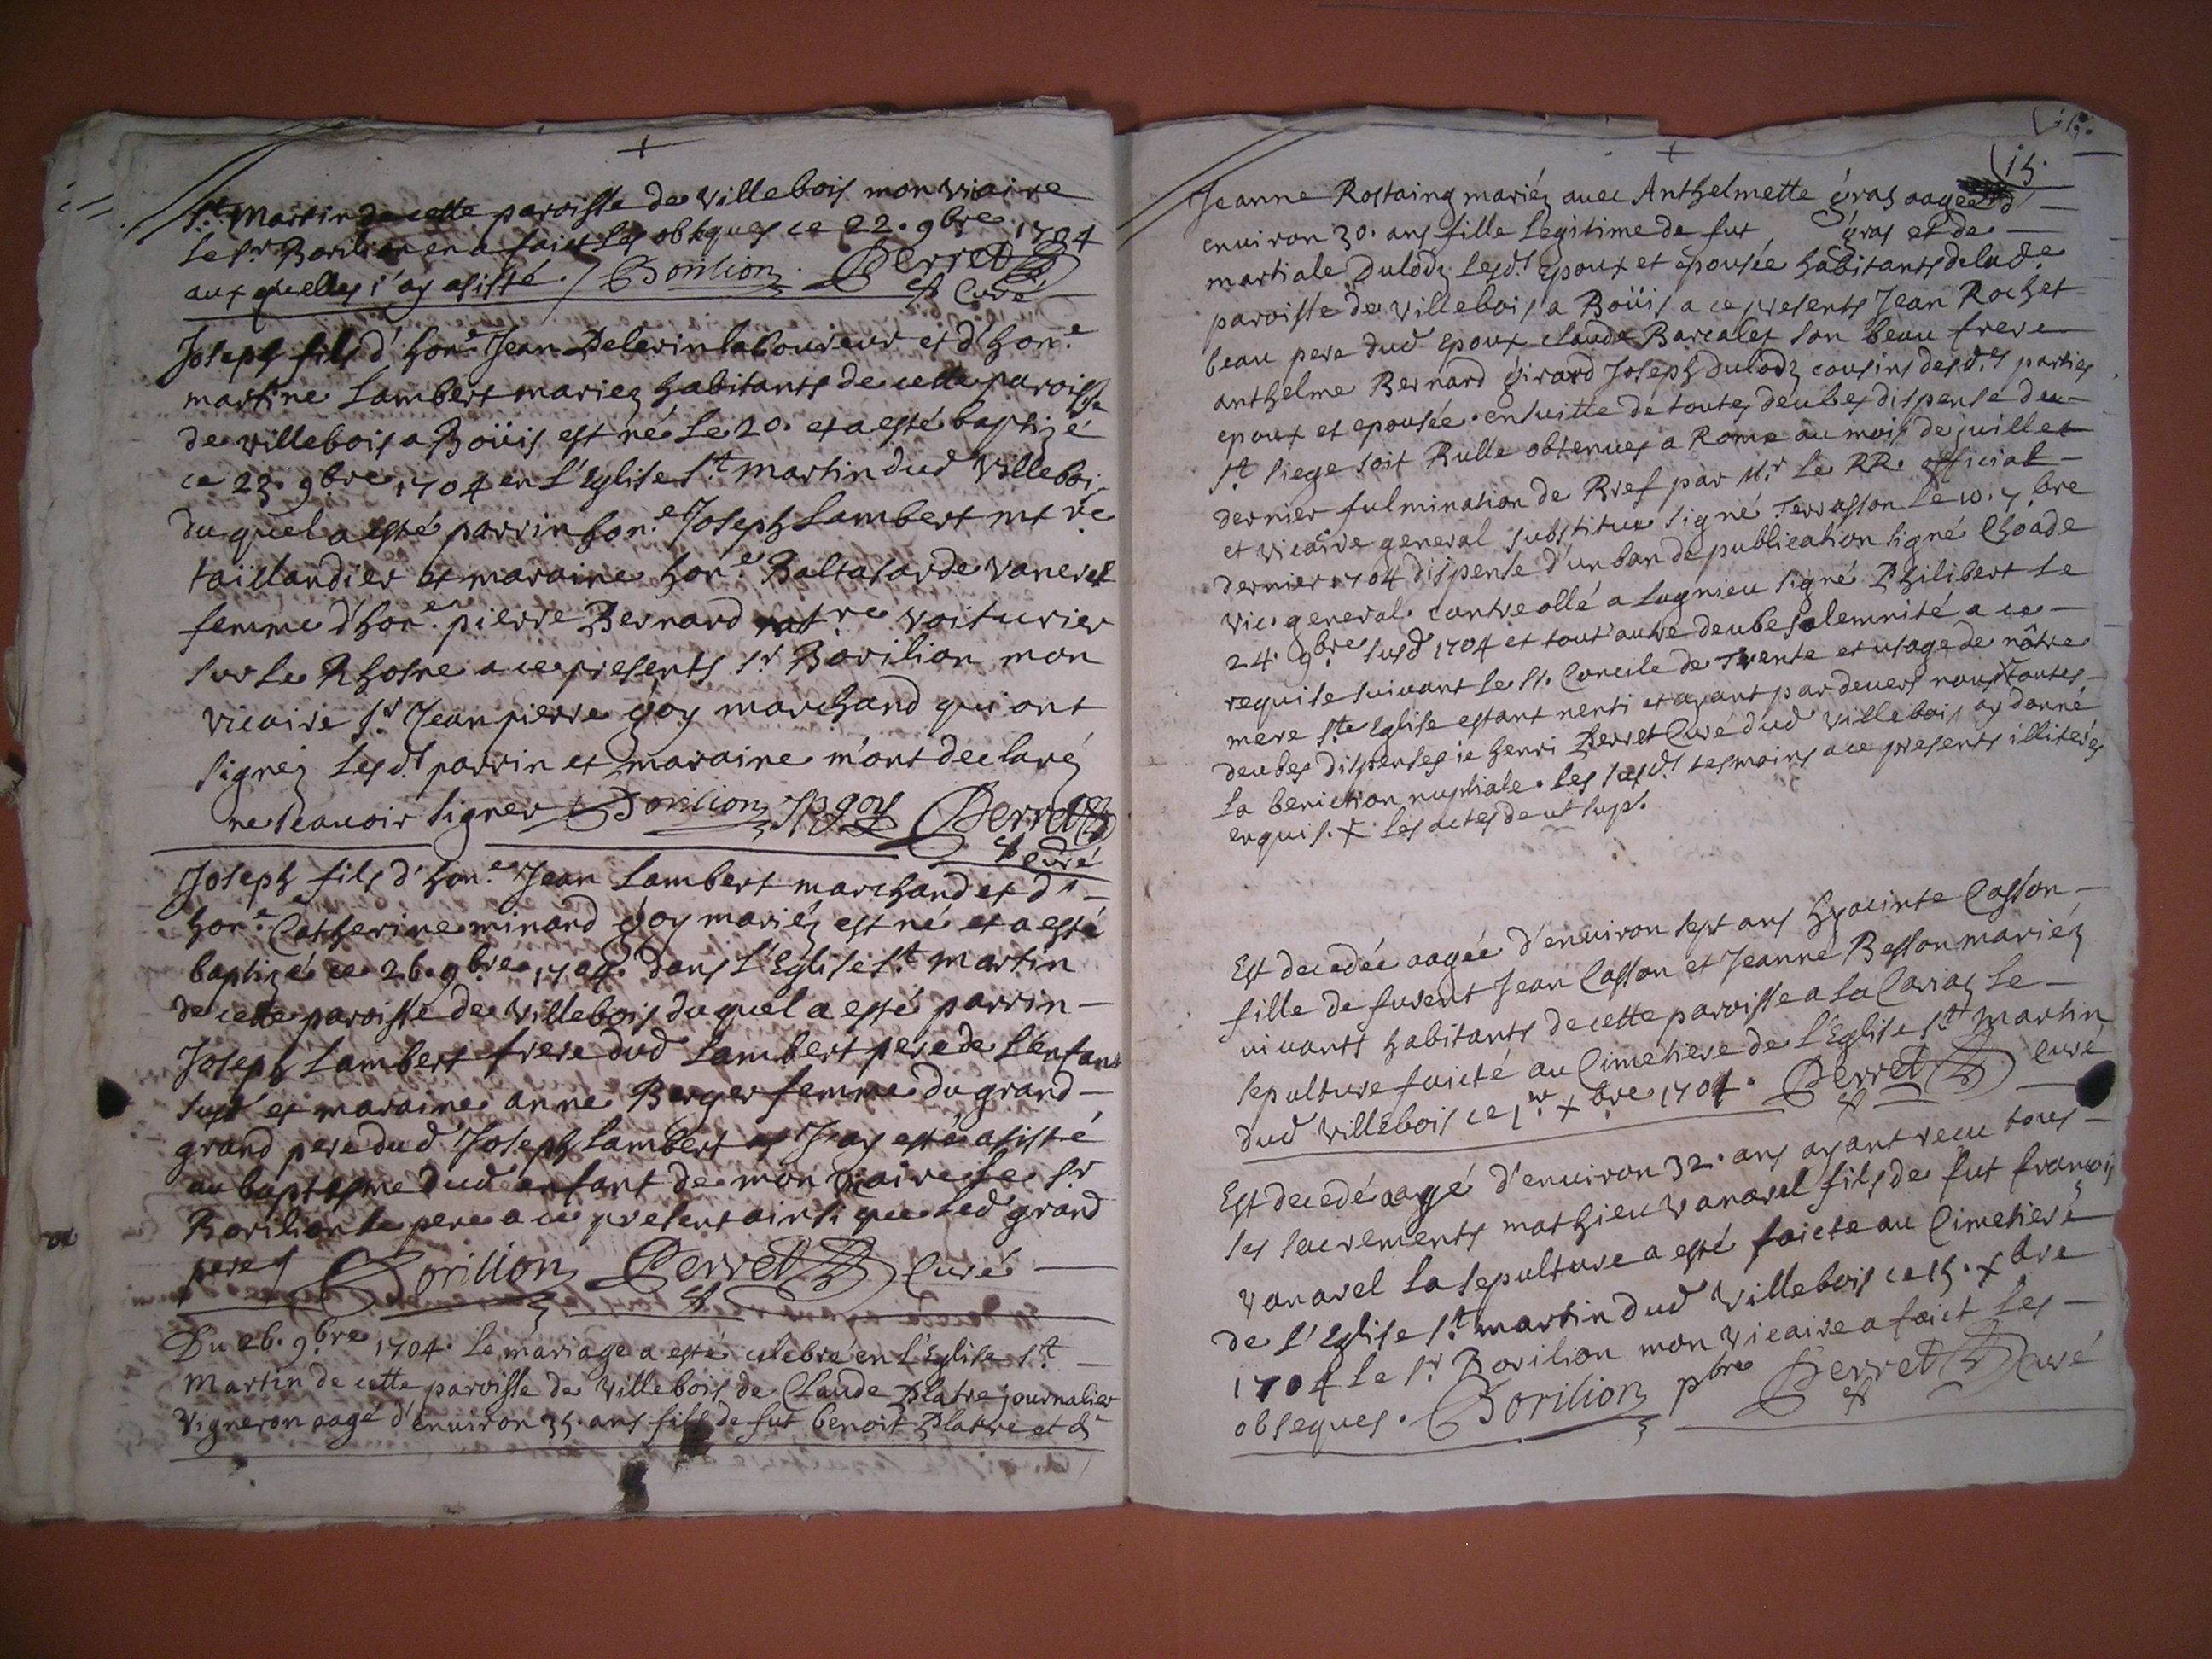 St Martin de cette paroisse de villebois mon viaire
le sr Borilion en a faict les obseques ce 22. 9bre 1704
aux quelles i'ay asisté. / Borilion. Perret
Curé
Joseph fils d'hone Jean Pelerin laboureur et d'hone
martine Lambert mariez habitants de cette paroisse
de villebois a Boüis est né le 20. et a esté baptizé
ce 23. 9bre 1704 en L'Eglise St martin dud villeboi
du quel a esté parrin hone Joseph Lambert mtre
taillandier et maraine hone Baltasarde vanerel
femme d'hone pierre Bernard mtre voiturier
sur Le Rhosne a ce presents sr Borilion mon
vicaire sr Jean pierre goy marchand qui ont
signez lesdt parrin et maraine m'ont declaréz
ne scauoir signer Borilion JP goy Perret
Curé
Joseph fils d'hone Jean Lambert marchand et d'-
hone Catherine minand goy mariéz est né et a esté
baptizé ce 26. 9bre 1704. dans L'Eglise St Martin
de cette paroisse de villebois duquel a esté parrin -
Joseph Lambert frere dud Lambert pere de L'enfant
susd et maraine anne Berger femme du grand -
grand pere dud Joseph Lambert et J'ay esté asisté
au baptesme dud enfant de mon viaire le sr
Borilion le pere a ce present ainsi que led grand
pere Borilion Perret Curé -
Du 26. 9bre 1704. le mariage a esté celebré en L'Eglise St -
Martin de cette paroisse de villebois de Claude Platre journalier
vigneron aagé d'environ 35. ans fils de fut benoit Platre et d'
15.
Jeanne Rostaing mariéz auec Anthelmette gras aagée d -
enuiron 30. ans fille Legitime de fut gras et de -
martiale Dulodz lesdt Epoux et epousée habitants de lade
paroisse de villebois a Boüis a ce presents Jean Rochet
beau pere dud Epoux claude Barcalet son beau frere
anthelme Bernard girard Joseph dulodz cousins desdes parties
epoux et epousée. ensuitte de toutes deubes dispense du -
st siege soit Bulle obtenues a Rome au mois de juillet
dernier fulmination de Bref par Mr le RR. official -
et vicaire general substitue signé Terrasson le 10. 7bre
dernier 1704 dispense d'un ban de publication signé Choade
vic. general. contreollé a Lagnieu signé Philibert le
24. 9bre susd 1704 et tout'autre deube solemnité a ce -
requise suivant le st. Concile de Trente et usage de nôtre
mere ste Eglise estant nenti et ayant par deuers nous toutes -
deubes dispenses ie henri Perret Curé dud villebois ay donné
la beniction nuptiale. les susdt tesmoins a ce presents illiterés
enquis. x les actes de ut supa.
Est decedée aagée d'enuiron sept ans hyacinte Casson -
fille de furent Jean Casson et Jeanne Besson mariéz
uiuants habitants de cette paroisse a la Cariaz le -
sepulture faicte au Cimetiere de L'Eglise St martin
dud villebois ce 1er xbre 1704. Perret Curé
Est decedé aagé d'enuiron 32. ans ayant recu tous -
les sacrements mathieu vanarel fils de fut francois
vanarel la sepulture a esté faicte au Cimetiere
de L'Eglise St martin dud villebois ce 15. xbre
1704 le sr Borilion mon vicaire a faict les -
obseques. Borilion pbre Perret Curé